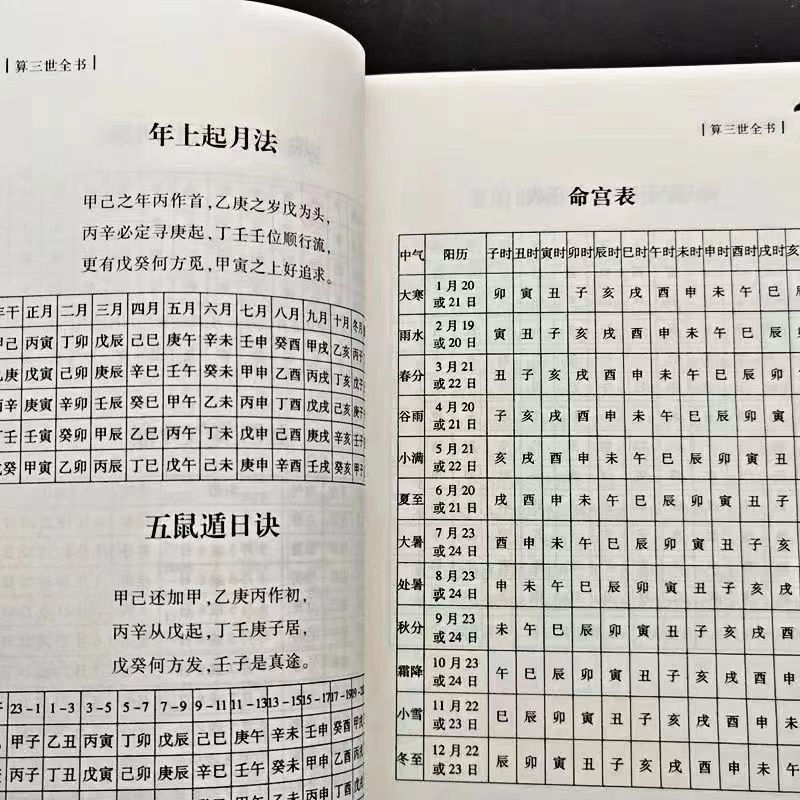 算三世全书
年上起月法
甲己之年丙作首，乙庚之岁戊为头，
丙辛必定寻庚起，丁壬壬位顺行流，
更有戊癸何方觅，甲寅之上好追求。
干 正月 二月 三月 四月 五月 六月 七月 八月 九月 十月 冬月
甲己 丙寅 丁卯 戊辰 己巳 庚午 辛未 壬申 癸酉 甲戌 乙亥 丙子
乙庚 戊寅 己卯 庚辰 辛巳 壬午 癸未 甲申 乙酉 丙戌 丁亥 戊子
丙辛 庚寅 辛卯 壬辰 癸巳 甲午 乙未 丙申 丁酉 戊戌 己亥 庚子
丁壬 壬寅 癸卯 甲辰 乙巳 丙午 丁未 戊申 己酉 庚戌 辛亥 壬子
戊癸 甲寅 乙卯 丙辰 丁巳 戊午 己未 庚申 辛酉 壬戌 癸亥 甲子
五鼠遁日诀
甲己还加甲，乙庚丙作初，
丙辛从戊起，丁壬庚子居，
戊癸何方发，壬子是真途。
23-1 1-3 3-5 5-7 7-9 9-11 11-13 13-15 15-17 17-19
甲子 乙丑 丙寅 丁卯 戊辰 己巳 庚午 辛未 壬申 癸酉 甲戌
丙子 丁丑 戊寅 己卯 庚辰 辛巳 壬午 癸未 甲申 乙酉 丙戌
算三世全书
命宫表
中气 阳历 子时 丑时 寅时 卯时 辰时 巳时 午时 未时 申时 酉时 戌时 亥
大寒 1月20或21日 卯 寅 丑 子 亥 戌 酉 申 未 午 巳
雨水 2月19或20日 寅 丑 子 亥 戌 酉 申 未 午 巳 辰
春分 3月21或22日 丑 子 亥 戌 酉 申 未 午 巳 辰 卯
谷雨 4月20或21日 子 亥 戌 酉 申 未 午 巳 辰 卯 寅
小满 5月21或22日 亥 戌 酉 申 未 午 巳 辰 卯 寅 丑
夏至 6月20或21日 戌 酉 申 未 午 巳 辰 卯 寅 丑 子
大暑 7月23或24日 酉 申 未 午 巳 辰 卯 寅 丑 子 亥
处暑 8月23或24日 申 未 午 巳 辰 卯 寅 丑 子 亥 戌
秋分 9月23或24日 未 午 巳 辰 卯 寅 丑 子 亥 戌 酉
霜降 10月23或24日 午 巳 辰 卯 寅 丑 子 亥 戌 酉 申
小雪 11月22或23日 巳 辰 卯 寅 丑 子 亥 戌 酉 申 未
冬至 12月22或23日 辰 卯 寅 丑 子 亥 戌 酉 申 未 午